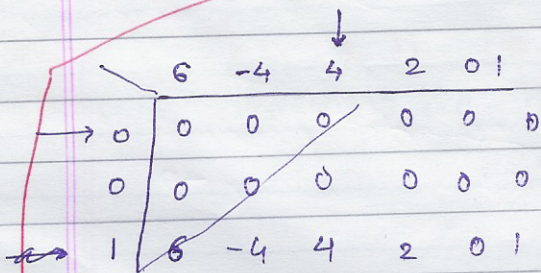 6 -4 4 2 0 1
0 0 0 0 0 0 0
0 0 0 0 0 0 0
1 6 -4 4 2 0 1